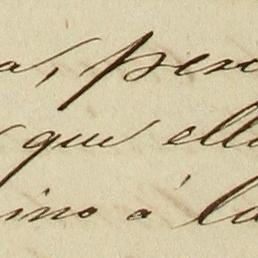 a, pero
que ella
ino á la